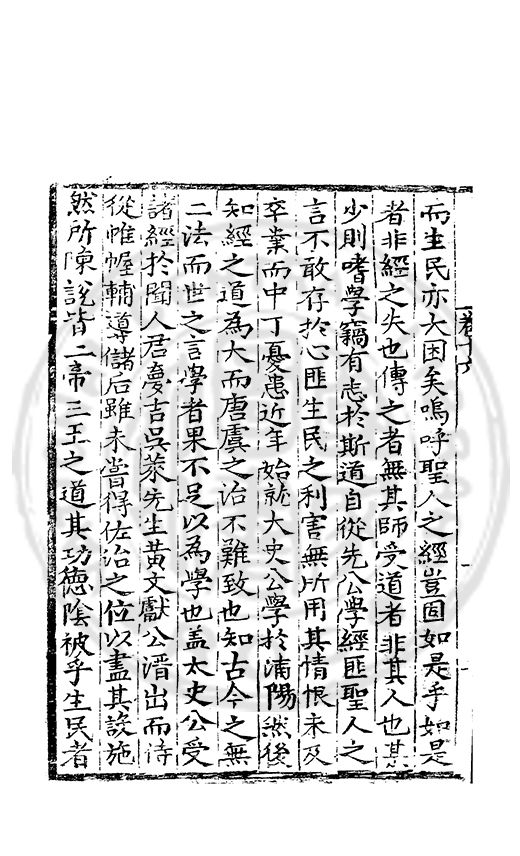 而生民亦大困矣嗚呼聖人之經豈固如是乎如是
者非經之失也傳之者無其師受道者非其人也某
少則嗜學竊有志於斯道自從先公學經匪聖人之
言不敢存於心匪生民之利害無所用其情恨未及
卒業而中丁憂患近年始就太史公學於浦陽然後
知經之道為大而唐虞之治不難致也知古今之無
二法而世之言學者果不足以為學也盖太史公受
諸經於聞人君夢吉吳萊先生黃文獻公溍出而侍
從帷幄輔導儲后雖未嘗得佐治之位以盡其設施
然所陳說皆二帝三王之道其功德陰被乎生民者
卷十六